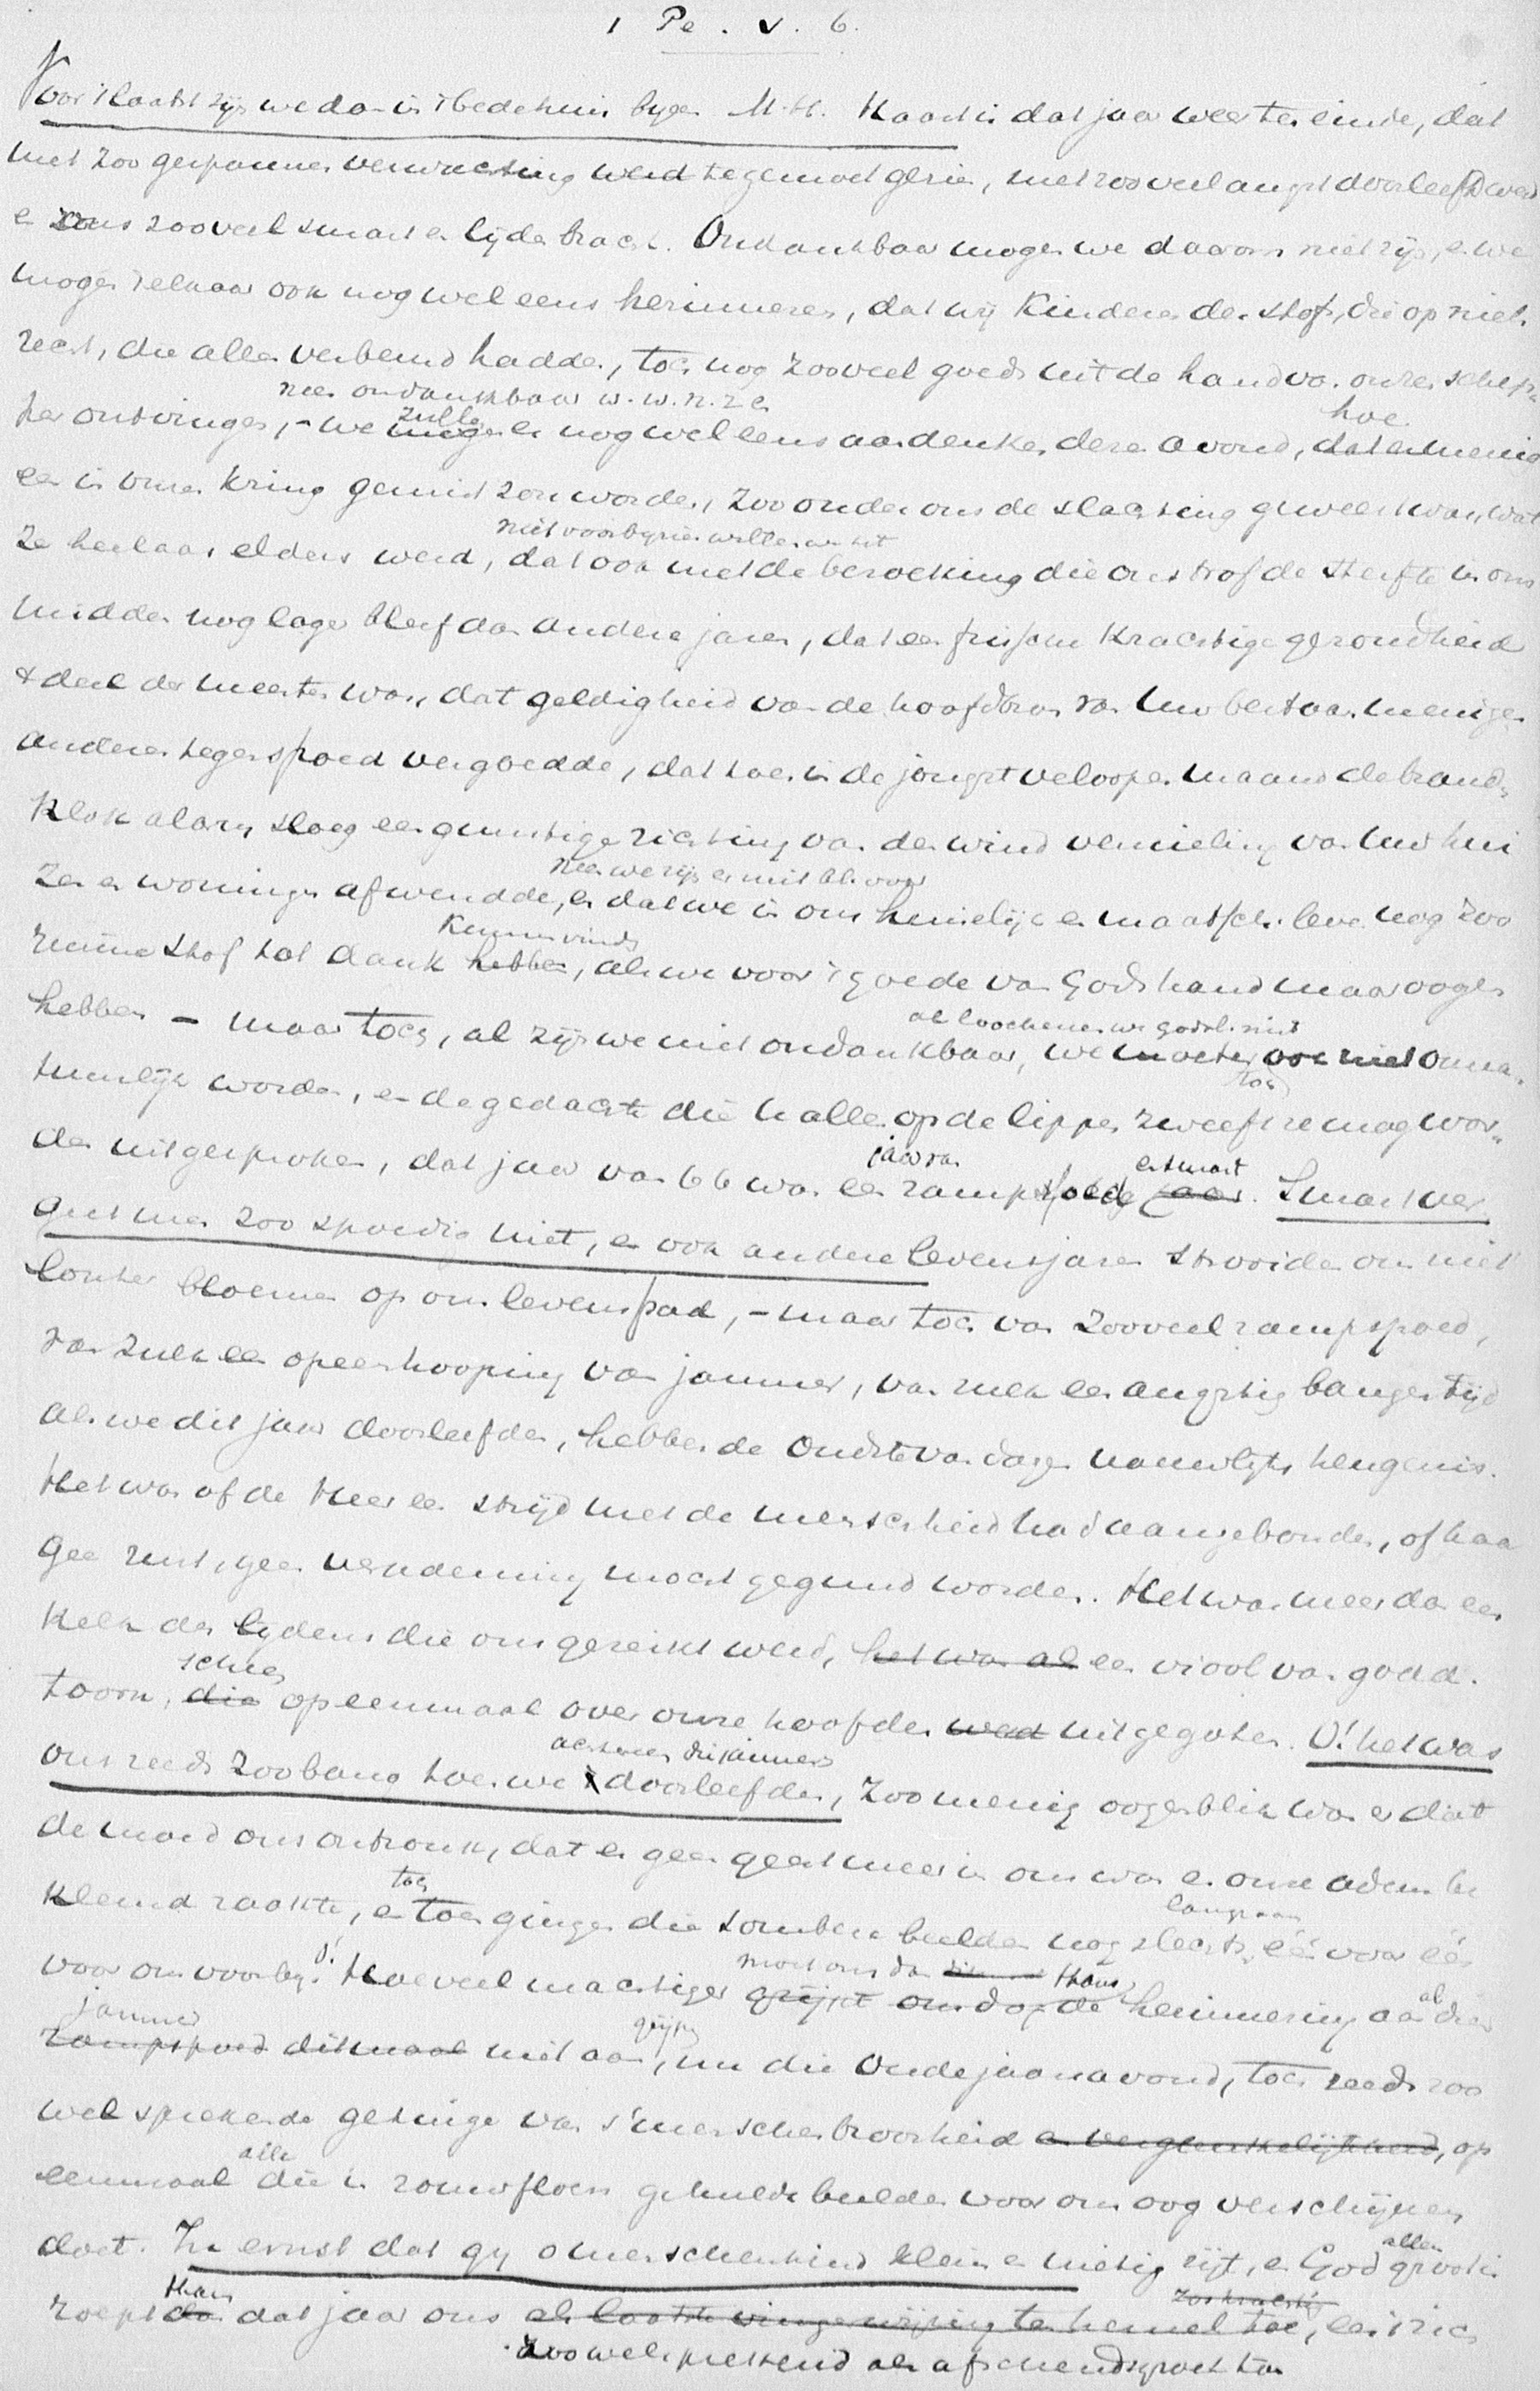 1 Pe. V. 6.
Voor 't laatst zijn we da- in 't bedehuis byee M.H. Haast is dat jaar weer ten einde, dat
met zoo gespannen verwachting werd tegemoet gezien, met zooveel angst doorleefd werd
e ons zooveel smart e lijde bracht. Ondankbaar mogen we daarom niet zijn, e we
mogen elkaar ook nog wel eens herinneren, dat wij kinderen des stofs, die op niets
recht, die alles verbeurd hadden, toch nog zooveel goeds uit de hand va. onzen schep
nee ondankbaar w. w. n. z e
hoe
per ontvingen, - we zullen er nog wel eens aa denken, deze avond, dat er menig
ee in onze kring gemist zou worden, zoo onder ons de slachting geweest was, wat
niet voorbyzien willen we het
ze helaas elders werd, dat ook met de bezoeking die ons trof de sterfte in ons
midden nog lager bleef dan andere jaren, dat een frissche krachtige gezondheid
't deel der meesten was, dat geldigheid va- de hoofdbron va Uw bestaan menigen
anderen tegenspoed vergoedde, dat toen in de jongst verloopen maand de brand-
klok alarm sloeg een gunstige richting va. den wind vernieling va. Uw hui
nee we zijn er niet bli voor
zen e woningen afwendde, e dat we in ons huiselijk e maatsch. leve nog zoo
kennen
ruime stof tot dank hebben, als we voor 't goede va Gods hand maar oogen
hebben - maar toch, al zijn we niet ondankbaar, we moeten ook niet onna-
al loochenen we niet
toch
tuurlijk worden, e de gedachte die U alle op de lippen zweeft ze mag wor-
den uitgesproken, dat jaar va 66 was een jaar va rampspoed e smart. Smart ver
geet men zoo spoedig niet, e ook andere levensjaren strooiden ons niet
louter bloemen op ons levenspad, - maar toch va zooveel rampspoed,
va zulk ee opeenhooping va jammer, va zulk ee angstig bangen tijd
als we dit jaar doorleefden, hebben de oudste va dagen nauwlijks heugenis.
Het was of de Heer ee strijd met de menschheid had aangebonden, of haar
gee rust, gee verademing mocht gegund worden. Het was meer da ee
kelk des lijdens die ons gereikt werd, het was al ee viool va godd.
scheen
toorn, die opeenmaal over onze hoofden werd uitgegoten. O! het was
achtereen die jammer
ons reeds zoo bang toen we 't doorleefden, zoo menig oogenblik was er dat
de moed ons ontzonk, dat er geen geest meer in ons was e onze adem be
toch
langzaam
klemd raakte, e toen gingen die sombere beelden nog slechts éé voor éé
voor ons voorby. O! Hoeveel machtiger moet ons da thans grijpt ons dan de herinnering aa al dien
jammer
rampspoed ditmaal niet aa grijpen, nu die Oudejaarsavond, toch reeds zoo
welsprekende getuige va 's menschen broosheid e vergankelijkheid, op
alle
eenmaal die in rouwfloers gehulde beelden voor ons oog verschijnen
doet. In ernst dat gij o menschenkind klein e nietig zijt, e God alleen groot is
thans
roept da dat jaar ons als laatste vingerwijzing ten hemel toe, ee
zoo welsprekend als afscheidsgroet toe